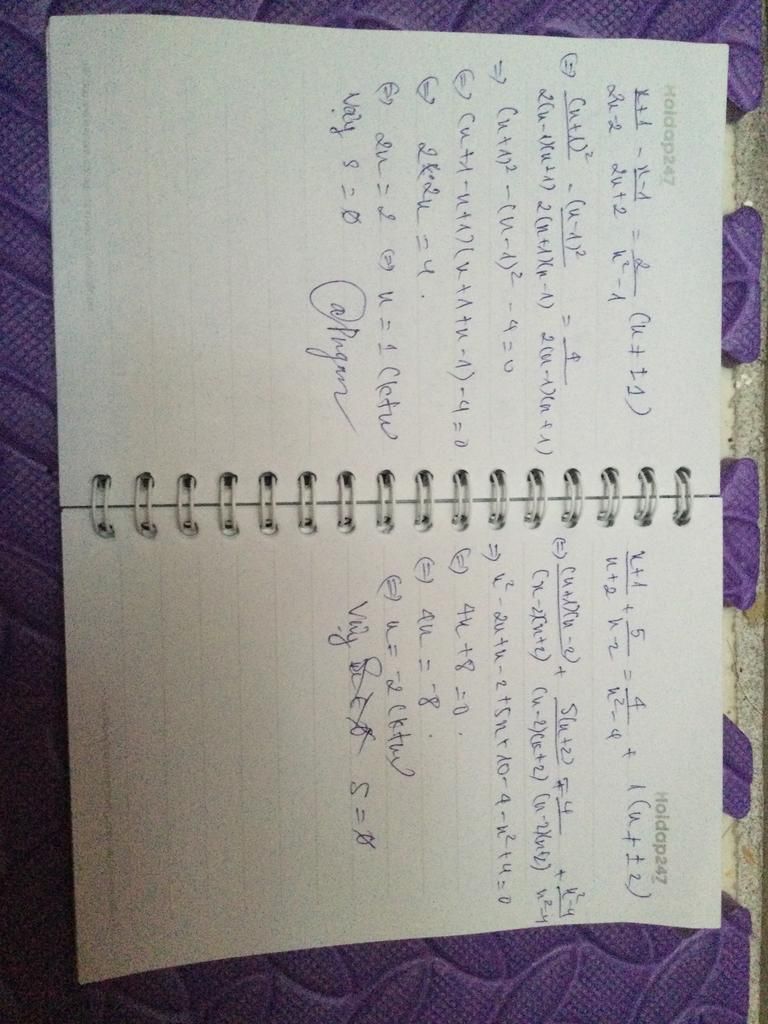 Hoidap247
x+1/2x-2 - x-1/2x+2 = 2/x²-1 (x≠±1)
(=) (x+1)²/2(x-1)(x+1) - (x-1)²/2(x+1)(x-1) = 4/2(x-1)(x+1)
=) (x+1)² - (x-1)² - 4 = 0
(=) (x+1-x+1)(x+1+x-1)-4=0
(=) 2.2x = 4.
(=) 2x = 2 (=) x = 1 (ktm)
Vậy S = ∅
@Pngan
Hoidap247
x+1/x+2 + 5/x-2 = 4/x²-4 + 1 (x≠±2)
(=) (x+1)(x-2)/(x-2)(x+2) + 5(x+2)/(x-2)(x+2) = 4/(x-2)(x+2) + x²-4/x²-4
=) x²-2x+x-2+5x+10-4-x²+4=0
(=) 4x+8=0.
(=) 4x = -8.
(=) x = -2 (ktm)
Vậy S = ∅